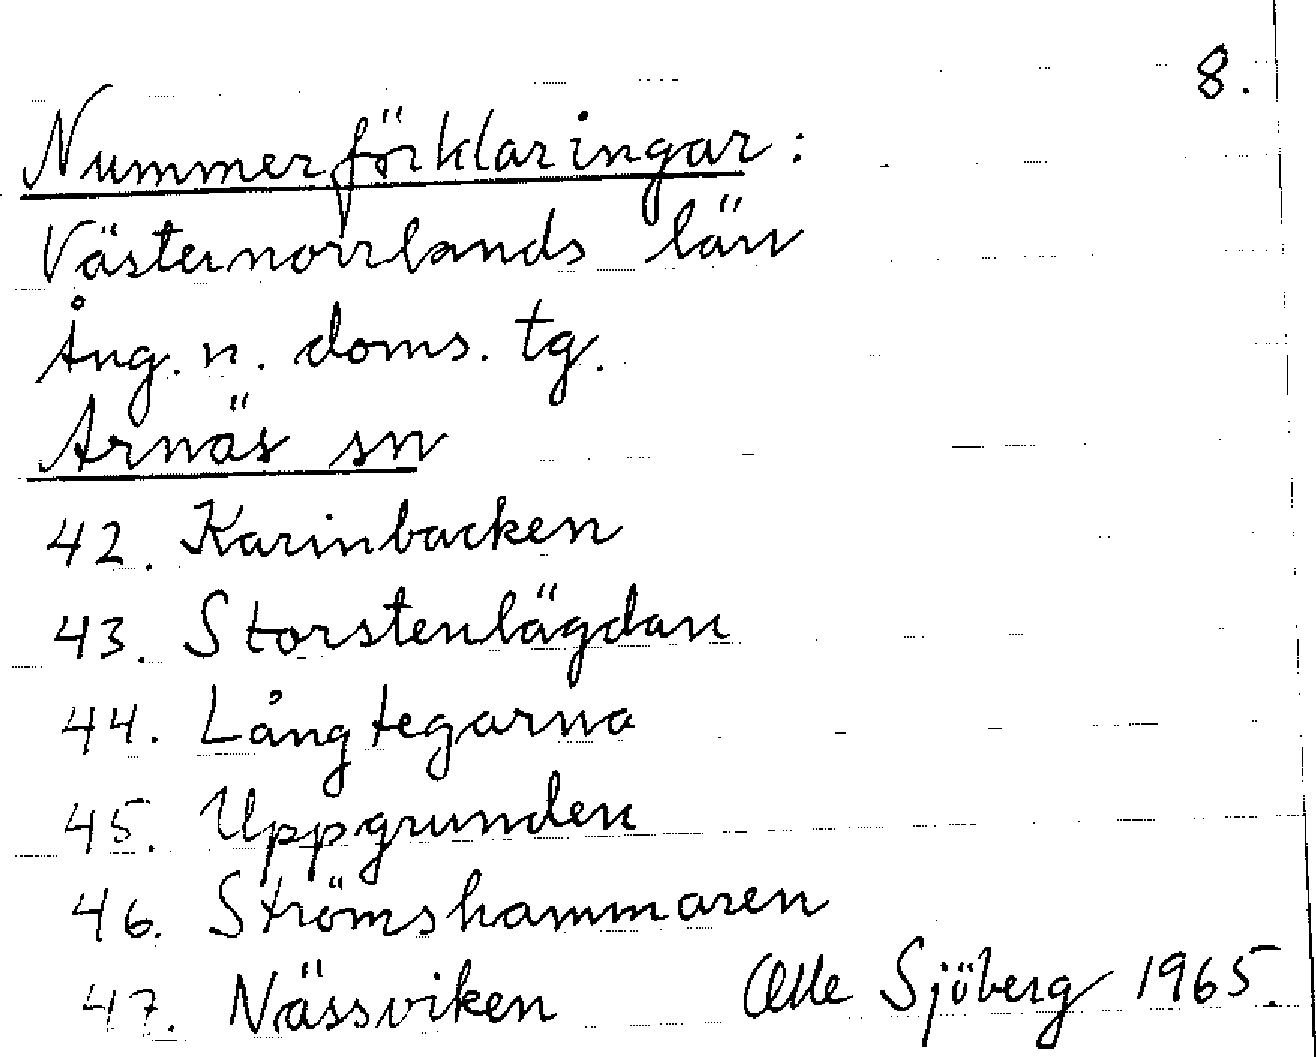 8.
Nummerförklaringar:
Västernorrlands län
Ång. n. doms. tg.
Arnäs sn
42. Karinbacken
43. Storstenlägdan
44. Långtegarna
45. Uppgrunden
46. Strömshammaren
47. Nässviken Olle Sjöberg 1965.